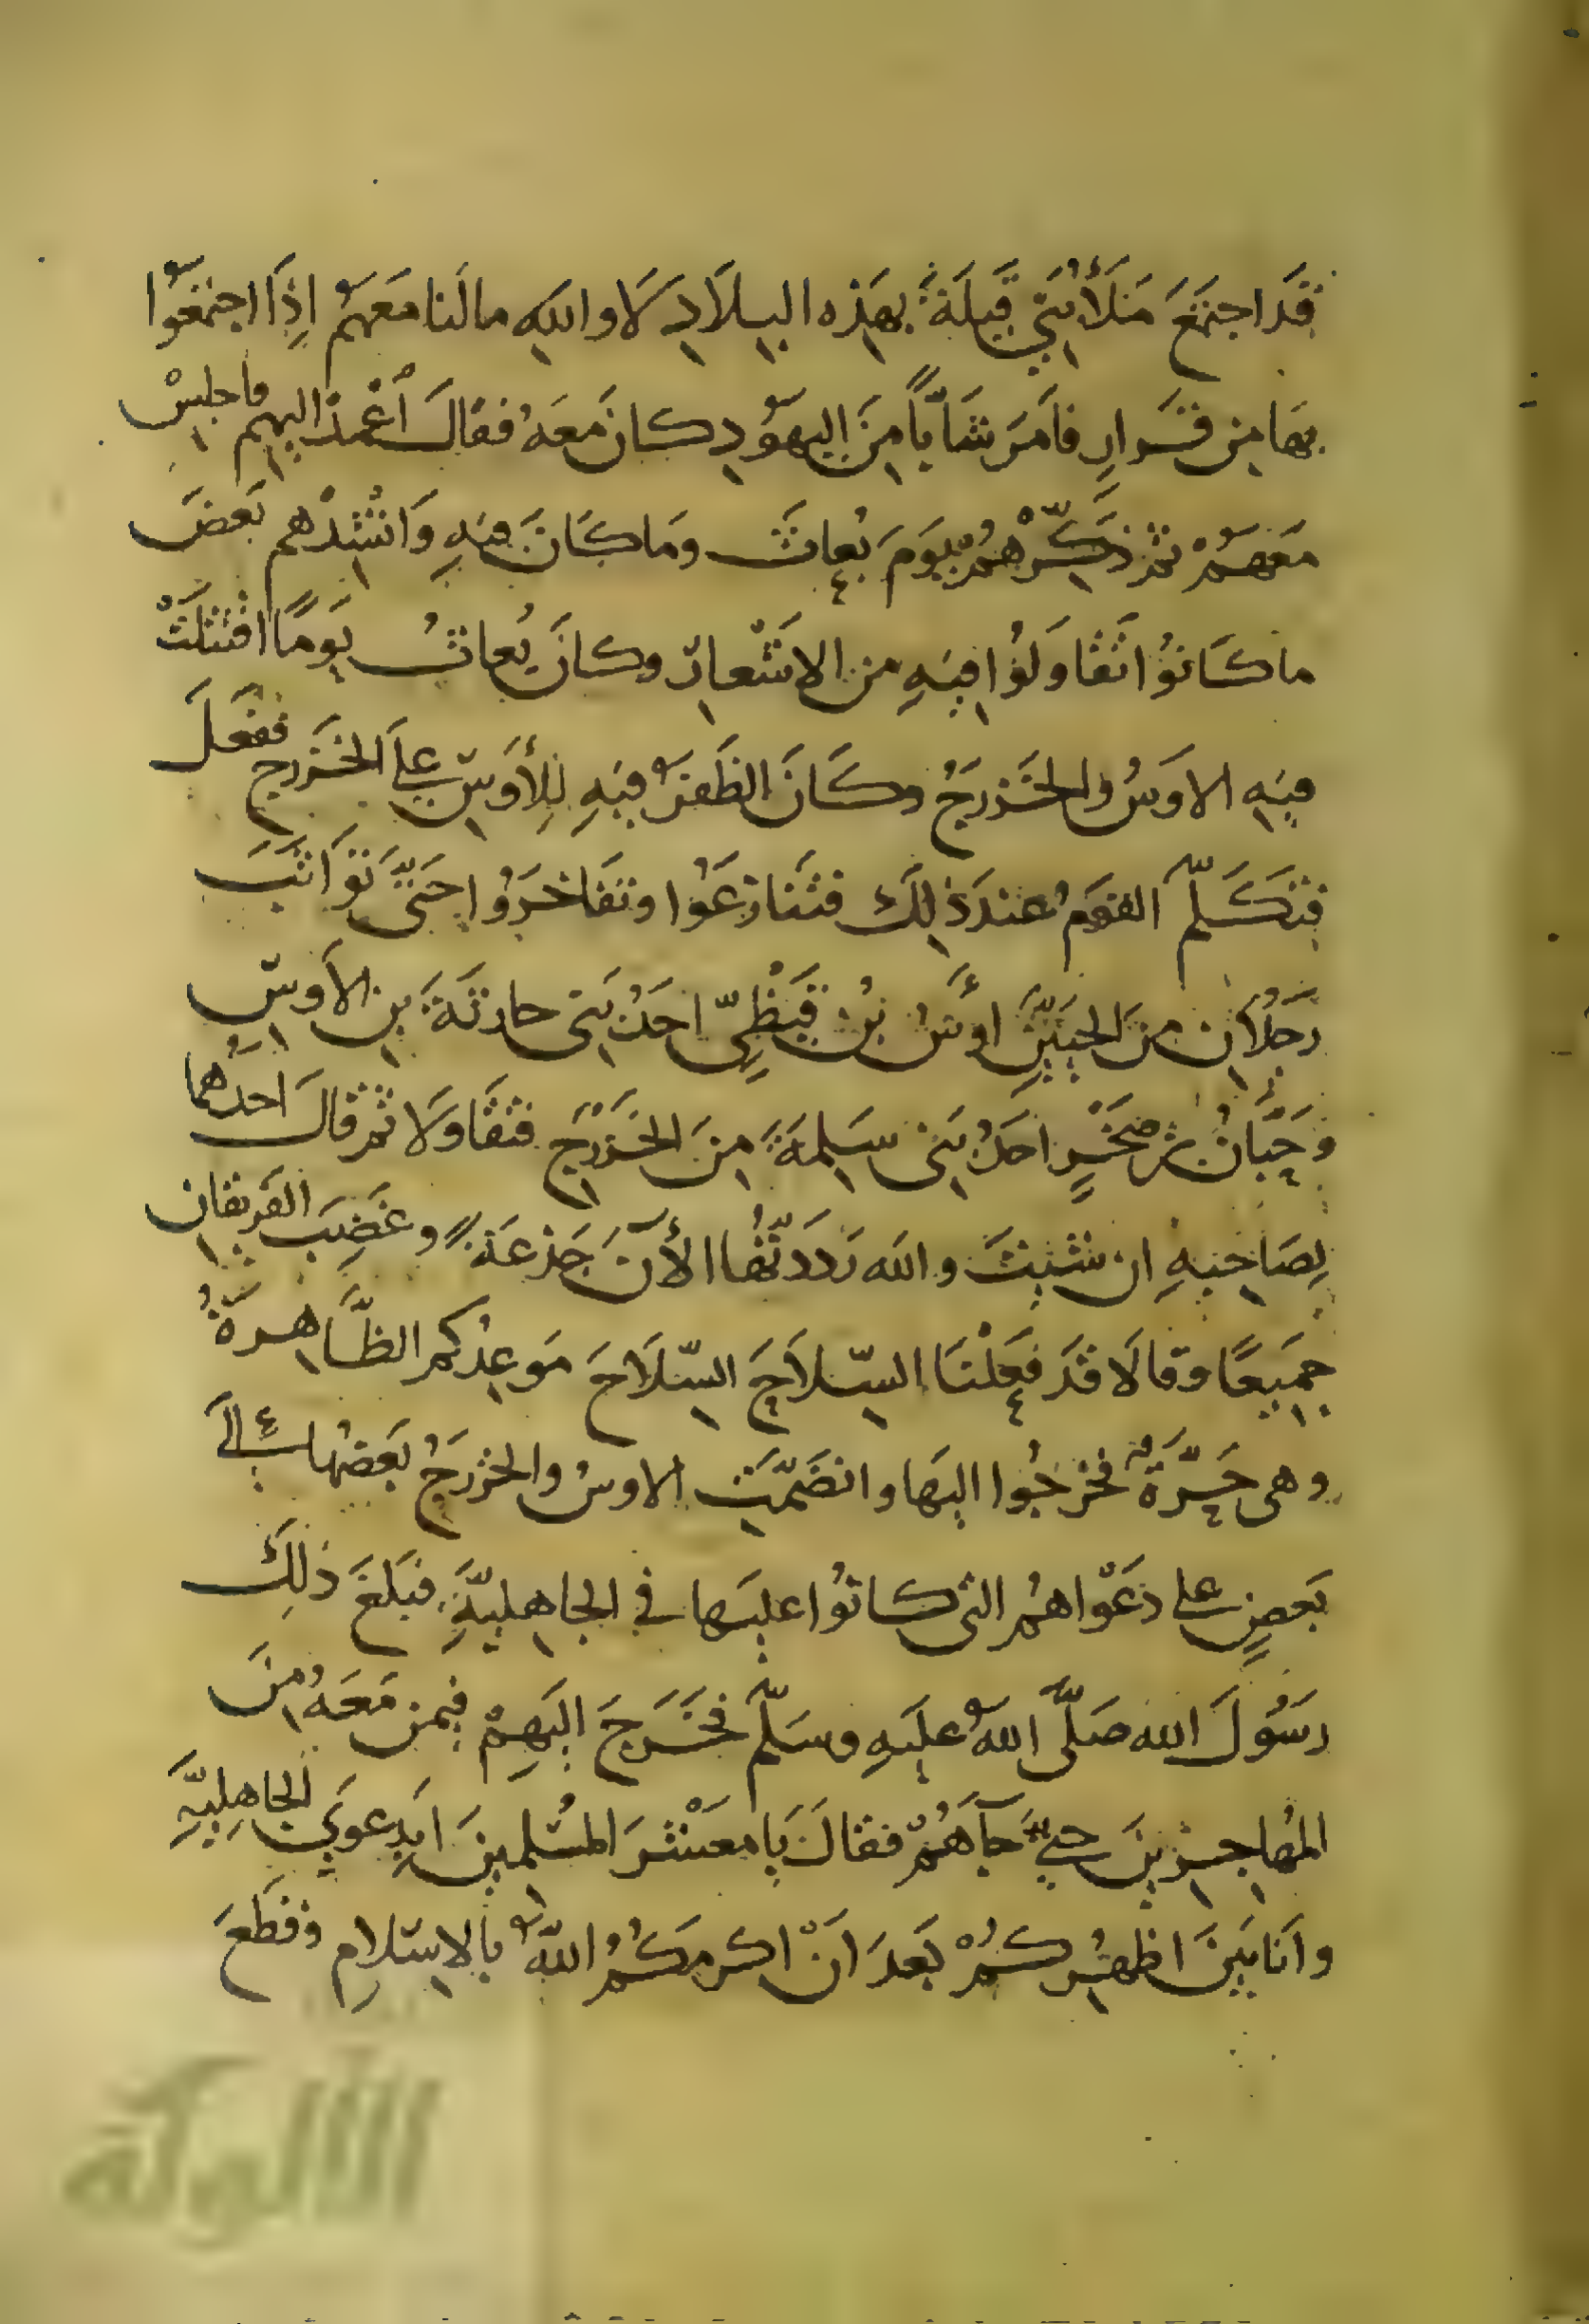 قَد اجتَمَعَ مَلَأُ بَنِي قَيلَةَ بهَذِه البِلَادِ لَا واللهِ مالَنا مَعَهُم إِذَا اجتمَعُوا
بهَا مِن قَرارٍ فأَمَرَ شَابّاً مِنَ اليهُودِ كانَ مَعَهُ فقالَ اُعْمِدْ إليهم فاجلِسْ
مَعَهُمْ ثم ذَكِّرْهُمْ يَومَ بُعاثَ ومَا كَانَ فيهِ وَانْشُدْهم بَعضَ
ما كَانُوا تَقَاوَلُوا فِيهِ مِن الاشْعارِ وكانَ بُعاثُ يَومًا اقْتَتَلَتْ
فِيهِ الاوَسُ والخَزرَجُ وكَانَ الظَفَرُ فِيهِ لِلأَوسِ على الخَزرَجِ ففَعَلَ
فتَكَلَّمَ القَومُ عندَ ذلِكَ فتَنازَعُوا وتَفَاخَرُوا حَتَّى تَوَاثَبَ
رَجُلَانِ مِنَ الحَيَّينِ أَوسُ بْنُ قَيْظِيّ احَدُ بَنى حارثَةَ بنِ الاَوسِ
وجَبَّارُ بنُ صَخْرٍ احَدُ بَنى سَلِمَةَ مِنَ الخَزْرَجِ فتَقَاوَلَا ثم قالَ احَدُهُما
لِصَاحِبهِ ان شئتَ والله رَدَدتُّهَا الأنَ جَذعَةً وغَضِبَ الفَرِيقانِ
جَمِيعًا وقالَا قَد فعَلْنَا السِّلَاحَ السِّلَاحَ مَوعِدُكم الظَّاهِرَةُ
وهى حَرَّةٌ فخرَجُوا اليهَا وانضَمَّتِ الاوسُ والخزرَجُ بَعضُها الَى
بَعضٍ على دَعْوَاهُم التى كانُوا عليهَا في الجاهليَّةِ فبَلَغَ ذلِكَ
رَسُولَ الله صَلَّى اللهُ عليَهِ وسَلَّم فخَرَجَ اليَهِمْ فِيمن مَعَهُ مِنَ
المُهاجِرينَ حتَّى جآهُمْ فقالَ يَا معْشَرَ المسُلمِينَ ابَدِعوَي الجاهِلِيَّةِ
وانَا بَينَ اظهُرِكُمْ بَعدَ انْ اكرمَكُمُ اللهُ بالاِسلامِ وقَطَعَ
الألوكة